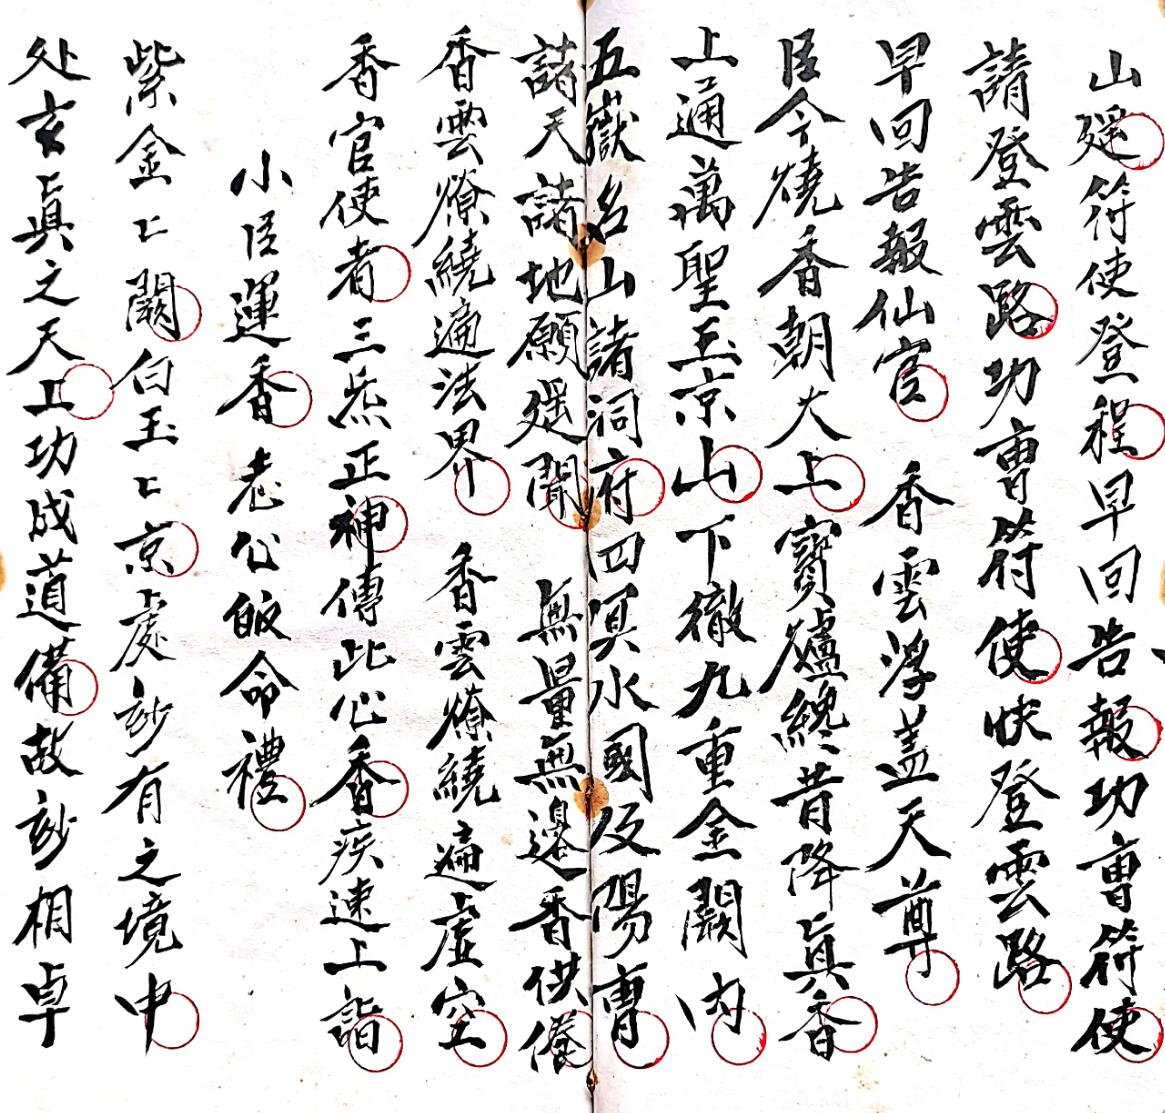 山遥符使登程早回告報功曹符使
請登雲路功曹符使快登雲路
早回告報仙官 香雲浮盖天尊
臣今燒香朝大上寶爐纔昔降真香
上通萬聖玉京山下徹九重金闕內
五嶽名山諸洞府四冥水國及陽曹
諸天諸地願遥聞 無量無邊香供養
香雲燎繞遍法界 香雲燎繞遍虛空
香官使者三炁正神傳此心香疾速上詣
小臣運香老公皈命禮
紫金〻闕白玉〻京〻處玅有之境中
处玄真之天工功成道備故玅相卓